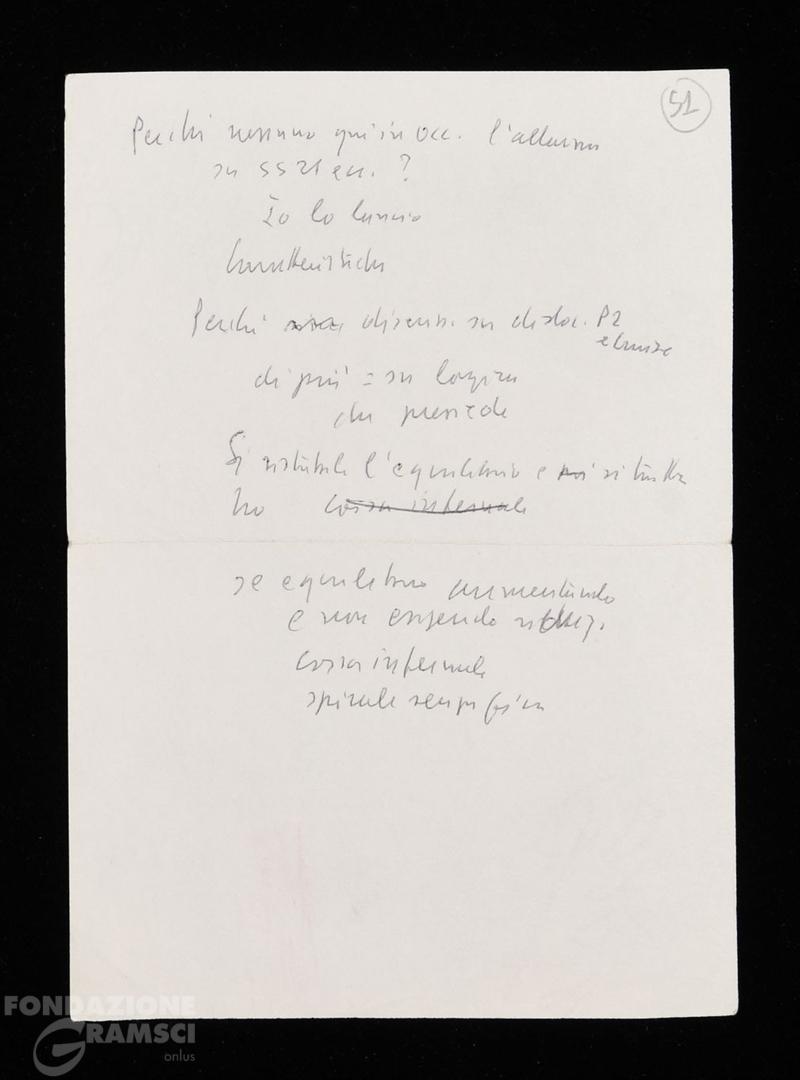 51
Perché nessuno qui in Occ. l'allarme
su SS21 ecc. ?
Io lo lancio
Caratteristiche
Perché discuss. su disloc. P2
e Cruise
di più = su logica
che presiede
Si ristabile l'equilibrio e si tratta
no corsa infernale
se equilibrio aumentando
e non
corsa infernale
spirale sempre più
FONDAZIONE
GRAMSCI
onlus